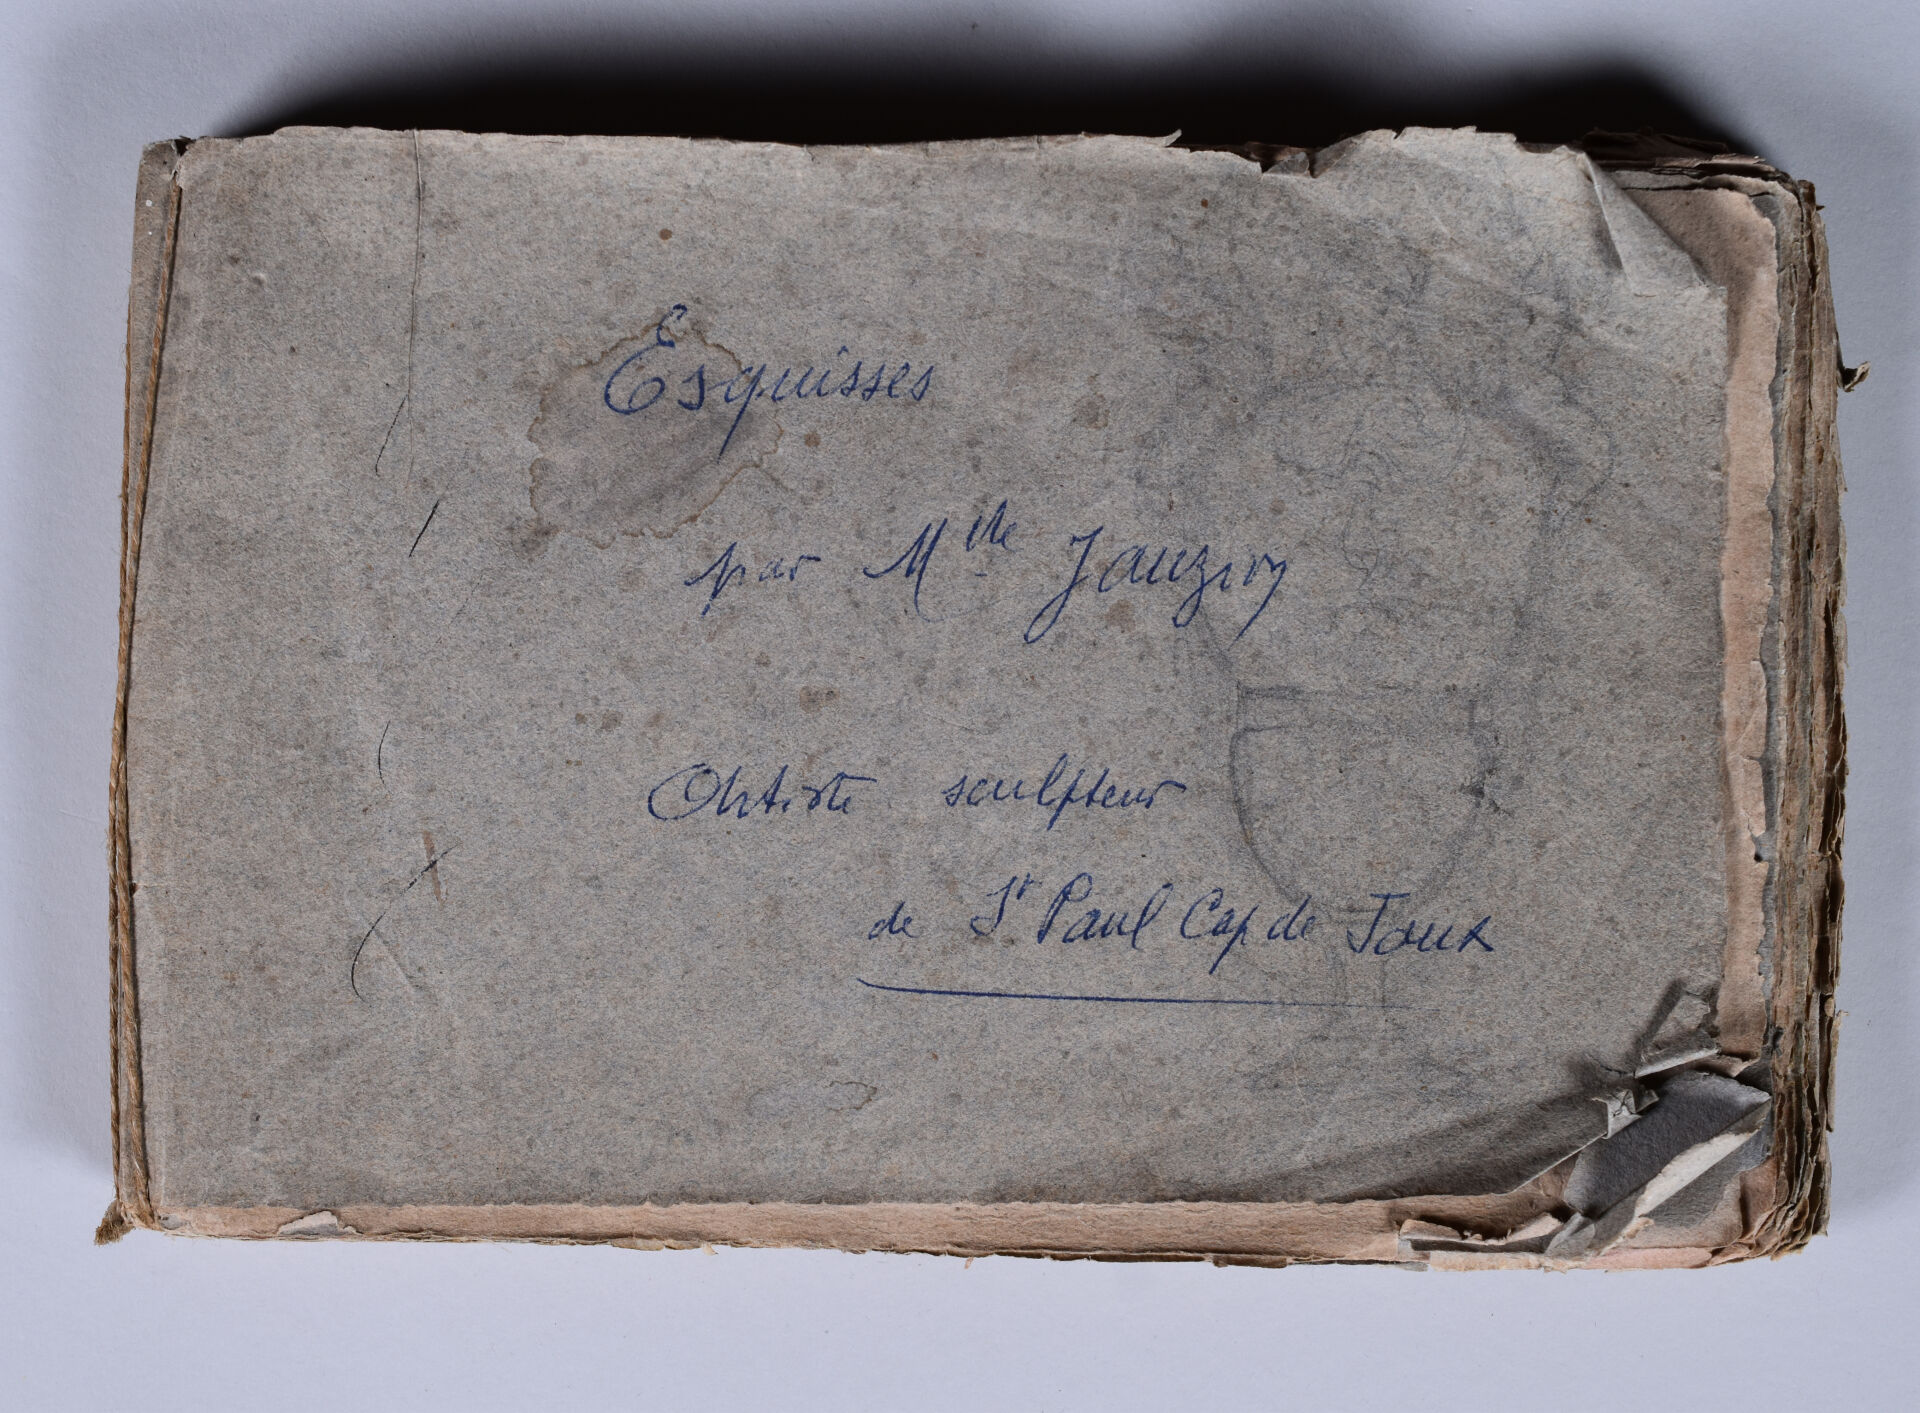 Esquisses
par Mlle Jauzion
Artiste sculpteur
de St Paul Cap de Joux